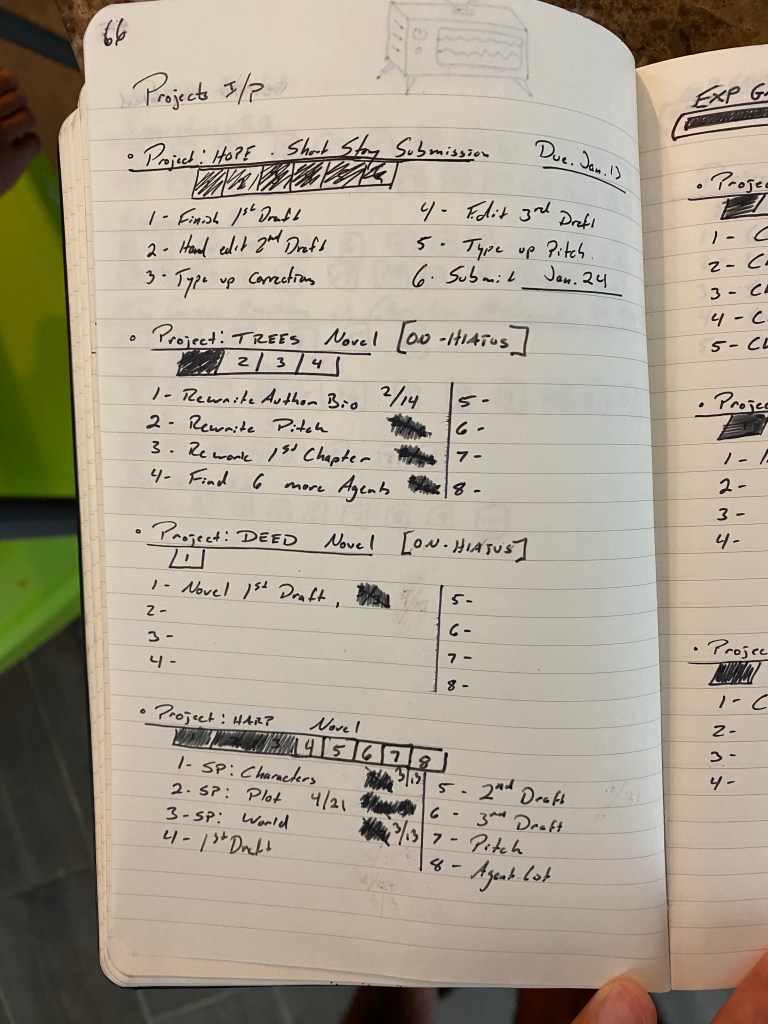 66
Projects I/P
• Project: HOPE - Short Story Submission Due. Jan. 13
1 - Finish 1st Draft
2 - Hand edit 2nd Draft
3 - Type up corrections
4 - Edit 3rd Draft
5 - Type up Pitch.
6. Submit Jan. 24
• Project: TREES Novel [ON-HIATUS]
2 3 4
1 - Rewrite Author Bio 2/14
2 - Rewrite Pitch
3 - Rework 1st Chapter
4 - Find 6 more Agents
5 -
6 -
7 -
8 -
• Project: DEED Novel [ON-HIATUS]
1
1 - Novel 1st Draft,
2 -
3 -
4 -
5 -
6 -
7 -
8 -
• Project: HARP Novel
1 2 3 4 5 6 7 8
1 - SP: Characters 3/13
2 - SP: Plot 4/21
3 - SP: World 3/13
4 - 1st Draft
5 - 2nd Draft
6 - 3rd Draft
7 - Pitch
8 - Agent Lot
EXP
• Projec
1 - C
2 - Ch
3 - Ch
4 - C
5 - Ch
• Projec
1 -
2 -
3 -
4 -
• Projec
1 - C
2 -
3 -
4 -